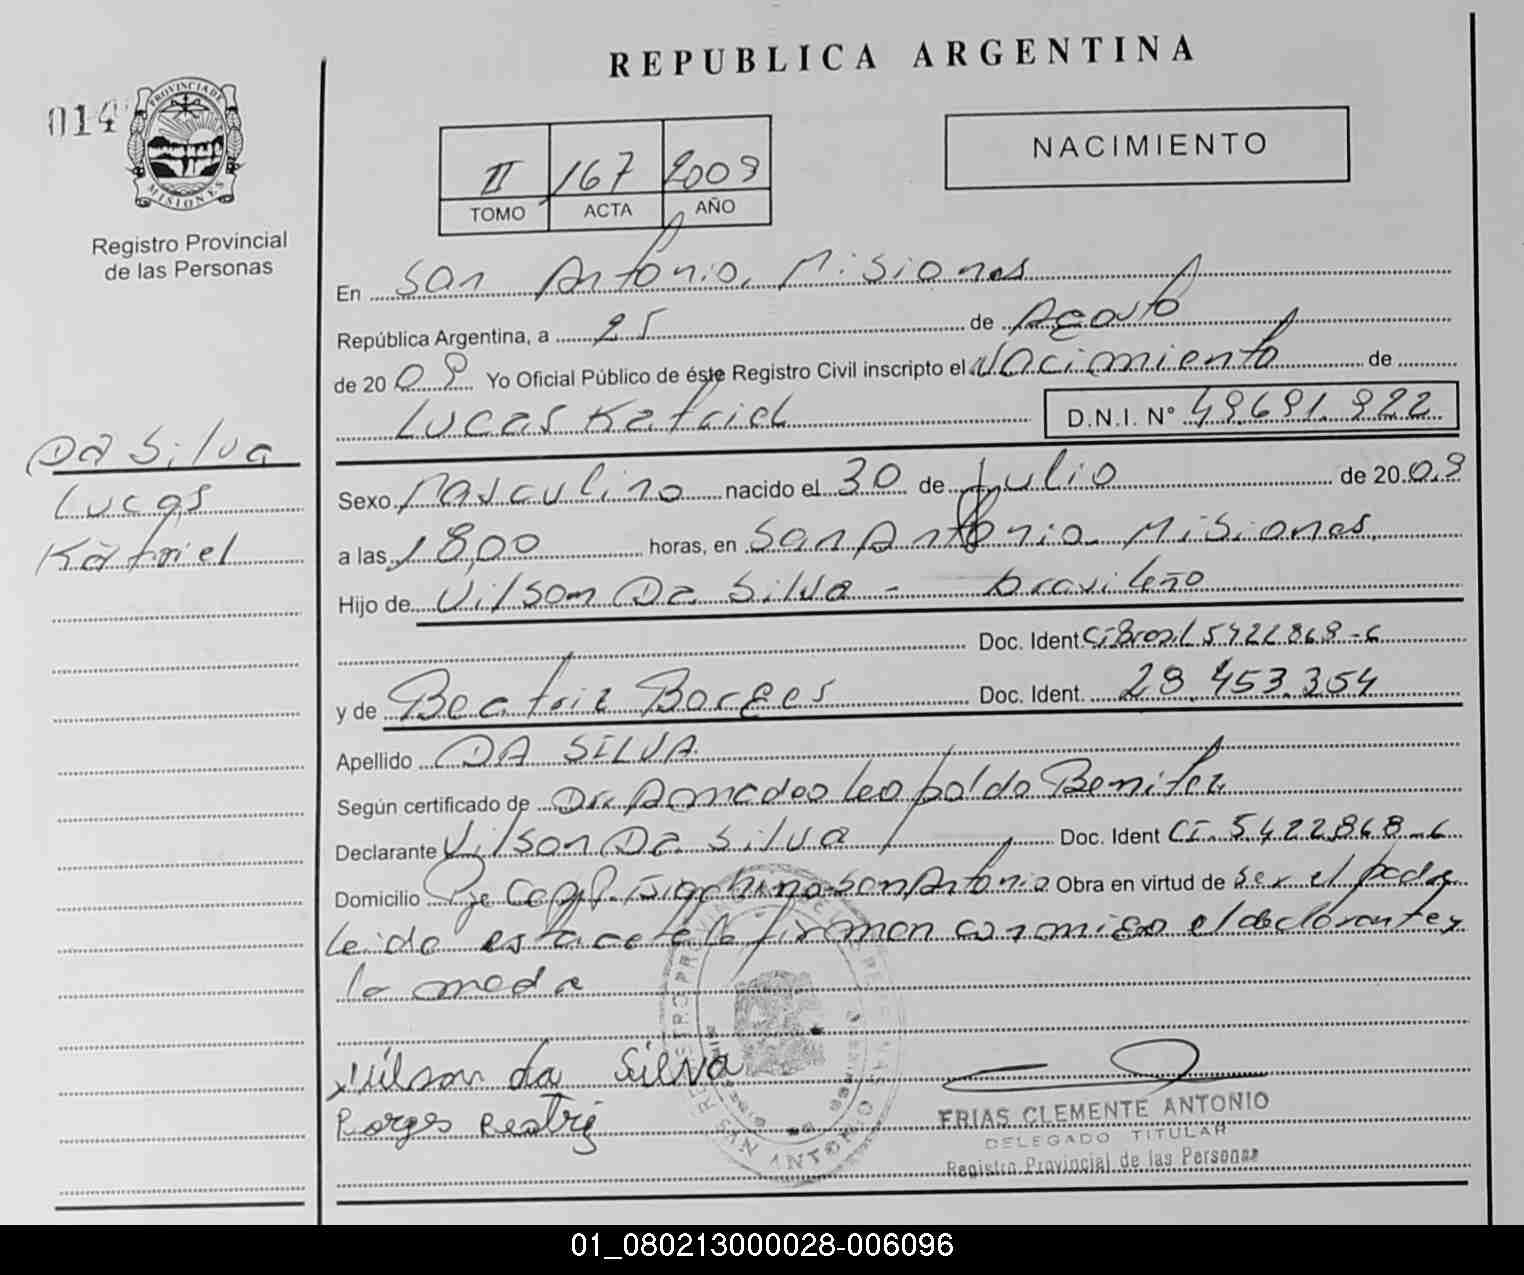 REPUBLICA ARGENTINA
014
PROVINCIA DE MISIONES
Registro Provincial
de las Personas
II 167 2009
TOMO ACTA AÑO
NACIMIENTO
En San Antonio, Misiones
República Argentina, a 25 de Agosto
de 2009 Yo Oficial Público de éste Registro Civil inscripto el Nacimiento de
Lucas Katriel D.N.I. N° 49.691.922
Da Silva
Lucas
Katriel
Sexo Masculino nacido el 30 de Julio de 2009
a las 18,00 horas, en San Antonio Misiones,
Hijo de Vilson Da Silva - brasileño
Doc. Ident CI Brasil 5422868-6
y de Beatriz Borges Doc. Ident. 28.453.354
Apellido DA SILVA
Según certificado de Dr. Amadeo Leopoldo Benitez
Declarante Vilson Da Silva Doc. Ident CI. 5422868-6
Domicilio Pje San Antonio Obra en virtud de ser el padre
leida esta acta la firman conmigo el declarante y
la madre
Vilson da Silva
Borges Beatriz
SAN ANTONIO
FRIAS CLEMENTE ANTONIO
DELEGADO TITULAR
Registro Provincial de las Personas
01_080213000028-006096